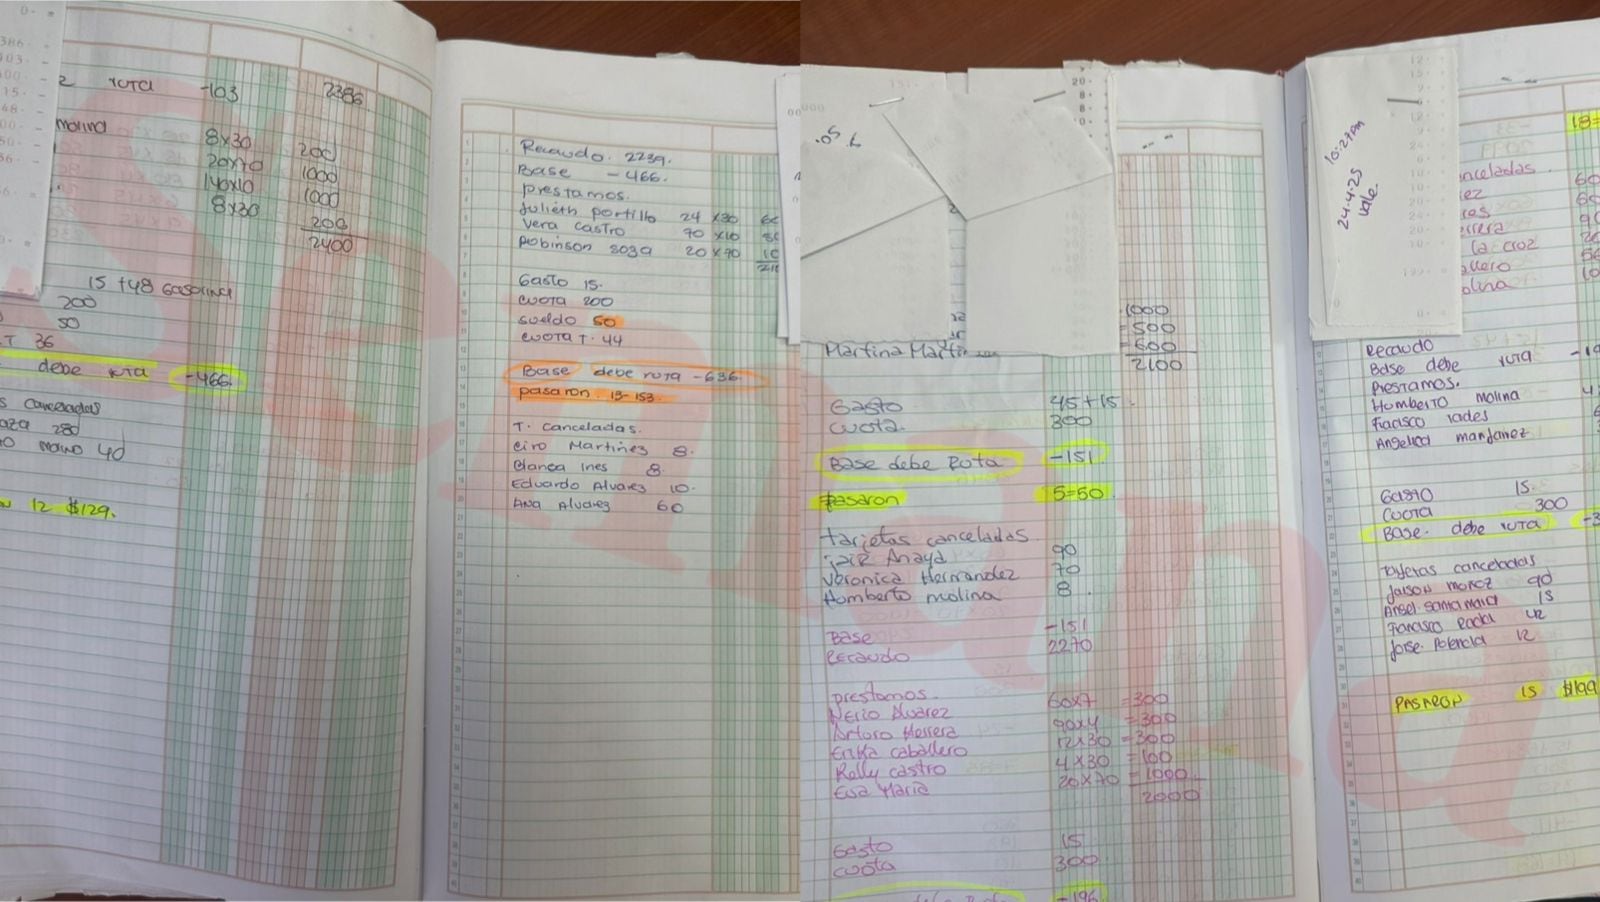 2 ruta -103 2386
molina 8x30 200
20x70 1000
140x10 1000
8x30 200
2400
15 +48 Gasolina
200
50
T 36
debe ruta -466
s canceladas
aza 280
to molino 40
12 $129.
Recaudo. 2239.
Base -466.
prestamos.
Julieth portillo 24 x30
Vera castro 70 x10
Robinson sosa 20x70
Gasto 15.
cuota 200
sueldo 50
cuota T. 44
Base debe ruta -636.
pasaron. 13-153.
T. canceladas.
Ciro Martinez 8.
Blanca Ines 8.
Eduardo Alvarez 10.
Ana Alvarez 60
1000
=500
=600
Martina
2100
Gasto 45+15.
cuota. 300
Base debe Ruta -151
Pasaron 5=50
tarjetas canceladas.
jair Anaya 90
Veronica Hernandez 70
Homberto molina 8
Base -151
Recaudo 2270
prestamos.
Nerio Alvarez 60x7 =300
Arturo Herrera 90x4 =300
Erika caballero 12x30 =300
Kelly castro 4x30 =100
Elsa Maria 20x70 =1000
2000
Gasto 15
cuota 300
-196
10:27am
24-4-25
vale.
18=
nceladas.
ez
res
errera
la croz
allero
olina
Recaudo
Base debe ruta
Prestamos.
Homberto molina
Angelica
Gasto 15.
cuota 300
Base. debe ruta
Tarjetas canceladas
90
Angel. santamaria 15
12
PASARON 15 $199
Semana